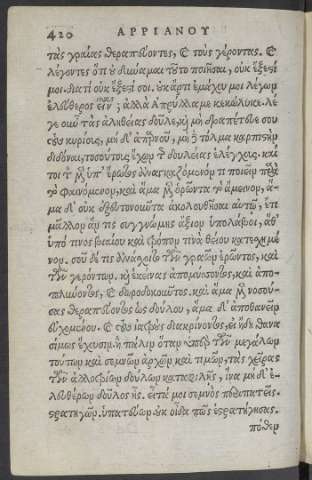 420 ΑΡΡΙΑΝΟΥ
τὰς γραίας θεραπεύοντες, καὶ τοὺς γέροντας. καὶ
λέγοντες ὅτι οὐ δύναμαι τοῦτο ποιῆσαι, οὐκ ἔξεστί
μοι. διατί οὐκ ἔξεστί σοι. οὐκ ἄρτι ἐμάχου μοι λέγων
ἐλεύθερος εἶναι; ἀλλὰ Απρύλλα με κεκώλυκε. λέ
γε οὖν τὰς ἀληθείας δοῦλε, καὶ μὴ δραπέτευέ σου
τοὺς κυρίους, μὴ δ' ἀπαρνοῦ, μὴ δὲ τόλμα καρπιστὴν
διδόναι, τοσούτους ἔχων τῆς δουλείας ἐλέγχους. καί
τοι τὸν μὲν ὑπ' ἔρωτος ἀναγκαζόμενόν τι ποιεῖν παρὰ
τὸ φαινόμενον, καὶ ἅμα μὲν ὁρῶντα τὸ ἄμεινον, ἅ-
μα δ' οὐκ ἐξευτονοῦντα ἀκολουθῆσαι αὐτῷ, ἔτι
μᾶλλον ἄν τις συγγνώμης ἄξιον ὑπολάβοι, ἅθ'
ὑπό τινος βιαίου καὶ τρόπον τινὰ θείου κατεχόμε
νον. σοῦ δὲ τίς ἀνάσχοιτο τῶν γραῶν ἐρῶντος, καὶ
τῶν γερόντων. καὶ ἐκείνας ἀπομύσσοντος, καὶ ἀπο-
πλύνοντος, καὶ δωροδοκοῦντος. καὶ ἅμα μὲν νοσού-
σας θεραπεύοντος ὡς δούλου, ἅμα δ' ἀποθανεῖν
εὐχομένου. καὶ τοὺς ἰατροὺς διακρίνοντος, εἰ ἤδη θανα
σίμως ἔχουσιν. ἢ πάλιν ὅταν ὑπὲρ τῶν μεγάλων
τούτων καὶ σεμνῶν ἀρχῶν καὶ τιμῶν, τὰς χεῖρας
τῶν ἀλλοτρίων δούλων καταφιλῇς, ἵνα μὴ δ' ἐ-
λευθέρων δοῦλος ᾖς. εἶτά μοι σεμνὸς περιπατεῖς.
στρατηγῶν. ὑπατεύων. οὐκ οἶδα πῶς ἐστρατήγησας.
πόθεν